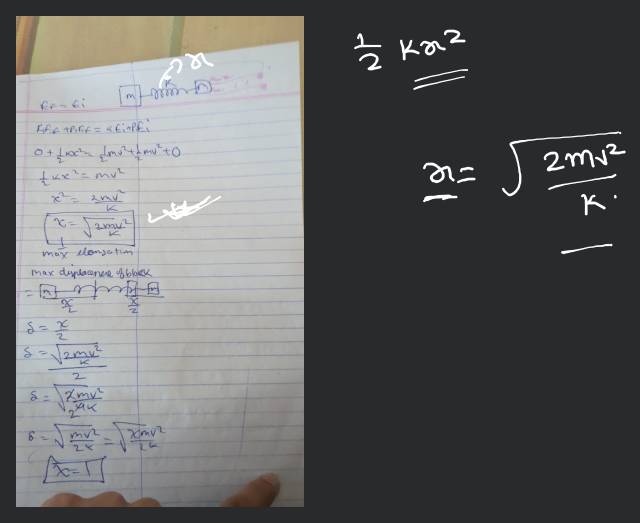 x
m K m
KEf + PEf = KEi + PEi
0 + 1/2 kx² = 1/2 mv² + 1/2 mv² + 0
1/2 kx² = mv²
x² = 2mv²/K
x = √(2mv²/K)
max elongation
max displacement of block
= m m
x/2 x/2
δ = x/2
δ = √(2mv²/K)/2
δ = √(2mv²/4K)
δ = √(mv²/2K) = √(xmv²/2K)
x = 1
1/2 Kx²
x = √(2mv²/K)